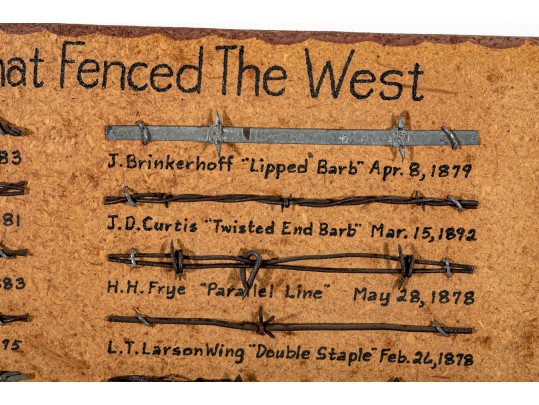 hat Fenced The West
83
J. Brinkerhoff "Lipped" Barb" Apr. 8, 1879
81
J.D. Curtis "Twisted End Barb" Mar. 15, 1892
883
H.H. Frye "Parallel Line" May 28, 1878
95
L.T. Larson Wing "Double Staple" Feb. 26, 1878